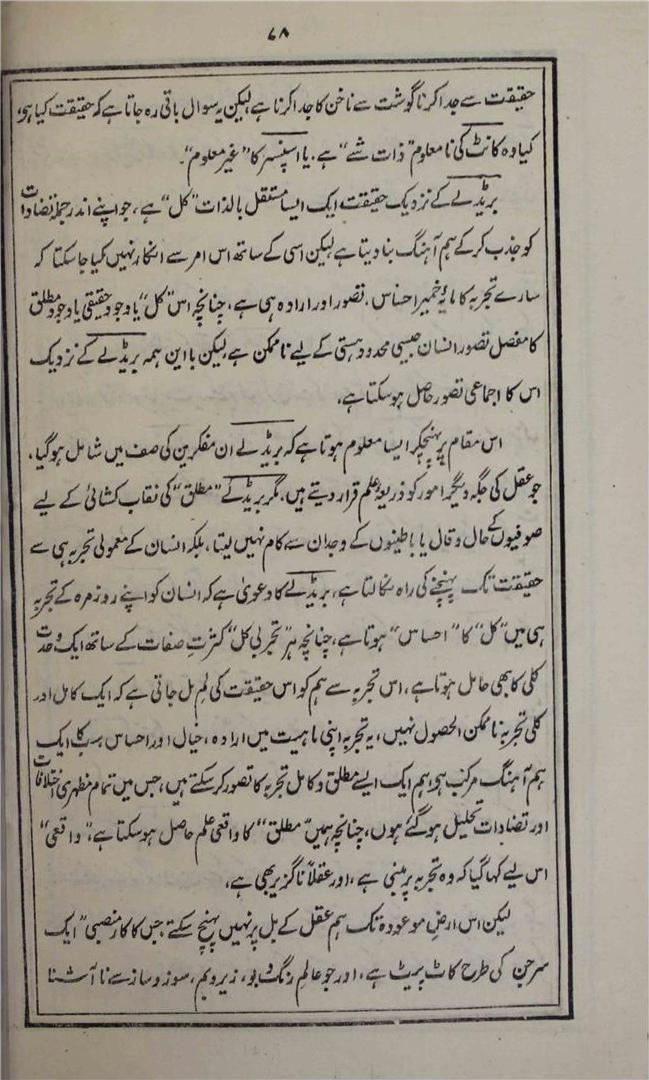 ۶۸
حقیقت سے جدا کرنا گوشت سے ناخن کا جدا کرنا ہے لیکن یہ سوال باقی رہ جاتا ہے کہ حقیقت کیا ہو،
کیا وہ کانٹ کی نامعلوم "ذات شے" ہے۔ یا اسپنسر کا "غیر معلوم"۔
بریڈلے کے نزدیک حقیقت ایک ایسا مستقل بالذات "کل" ہے، جو اپنے اندر جملہ تضادات
کو جذب کر کے ہم آہنگ بنا دیتا ہے لیکن اسی کے ساتھ اس امر سے انکار نہیں کیا جا سکتا کہ
سارے تجربہ کا مایۂ خمیر احساس، تصور اور ارادہ ہی ہے، چنانچہ اس "کل" یا وجود حقیقی یا وجود مطلق
کا مفصل تصور انسان جیسی محدود ہستی کے لیے ناممکن ہے لیکن با این ہمہ بریڈلے کے نزدیک
اس کا اجماعی تصور حاصل ہو سکتا ہے،
اس مقام پر پہنچکر ایسا معلوم ہوتا ہے کہ بریڈلے ان مفکرین کی صف میں شامل ہو گیا،
جو عقل کی جگہ دیگر امور کو ذریعۂ علم قرار دیتے ہیں، مگر بریڈلے "مطلق" کی نقاب کشائی کے لیے
صوفیوں کے حال و قال یا باطینوں کے وجدان سے کام نہیں لیتا، بلکہ انسان کے معمولی تجربہ ہی سے
حقیقت تک پہنچنے کی راہ نکالتا ہے، بریڈلے کا دعویٰ ہے کہ انسان کو اپنے روزمرہ کے تجربہ
ہی میں "کل" کا "احساس" ہوتا ہے، چنانچہ ہر "تجربی کل" کثرتِ صفات کے ساتھ ایک وحدت
کلی کا بھی حامل ہوتا ہے، اس تجربہ سے ہم کو اس حقیقت کی لِم مل جاتی ہے کہ ایک کامل اور
کلی تجربہ ناممکن الحصول نہیں، یہ تجربہ اپنی ماہیت میں ارادہ، خیال اور احساس سب کا ایک
ہم آہنگ مرکب ہو، ہم ایک ایسے مطلق و کامل تجربہ کا تصور کر سکتے ہیں، جس میں تمام مظہری اختلافات
اور تضادات تحلیل ہو گئے ہوں، چنانچہ ہمیں "مطلق" کا واقعی علم حاصل ہو سکتا ہے، "واقعی"
اس لیے کہا گیا کہ وہ تجربہ پر مبنی ہے، اور عقلاً ناگزیر بھی ہے،
لیکن اس ارضِ موعودہ تک ہم عقل کے بل پر نہیں پہنچ سکتے جس کا کار منصبی "ایک
سرجن کی طرح کاٹ پیٹ ہے، اور جو عالمِ رنگ و بو، زیر و بم، سوز و ساز سے نا آشنا